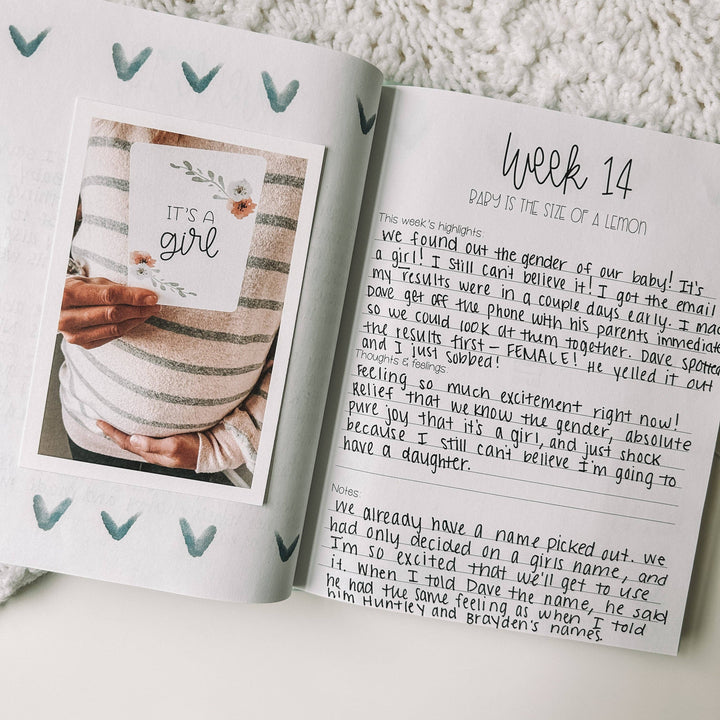 IT'S A
girl
Week 14
BABY IS THE SIZE OF A LEMON
This week's highlights:
We found out the gender of our baby! It's
a girl! I still can't believe it! I got the email
my results were in a couple days early. I made
Dave get off the phone with his parents immediate
so we could look at them together. Dave spotted
the results first - FEMALE! He yelled it out
and I just sobbed!
Thoughts & feelings:
Feeling so much excitement right now!
Relief that we know the gender, absolute
pure joy that it's a girl, and just shock
because I still can't believe I'm going to
have a daughter.
Notes:
We already have a name picked out. We
had only decided on a girls name, and
I'm so excited that we'll get to use
it. When I told Dave the name, he said
he had the same feeling as when I told
him Huntley and Brayden's names.